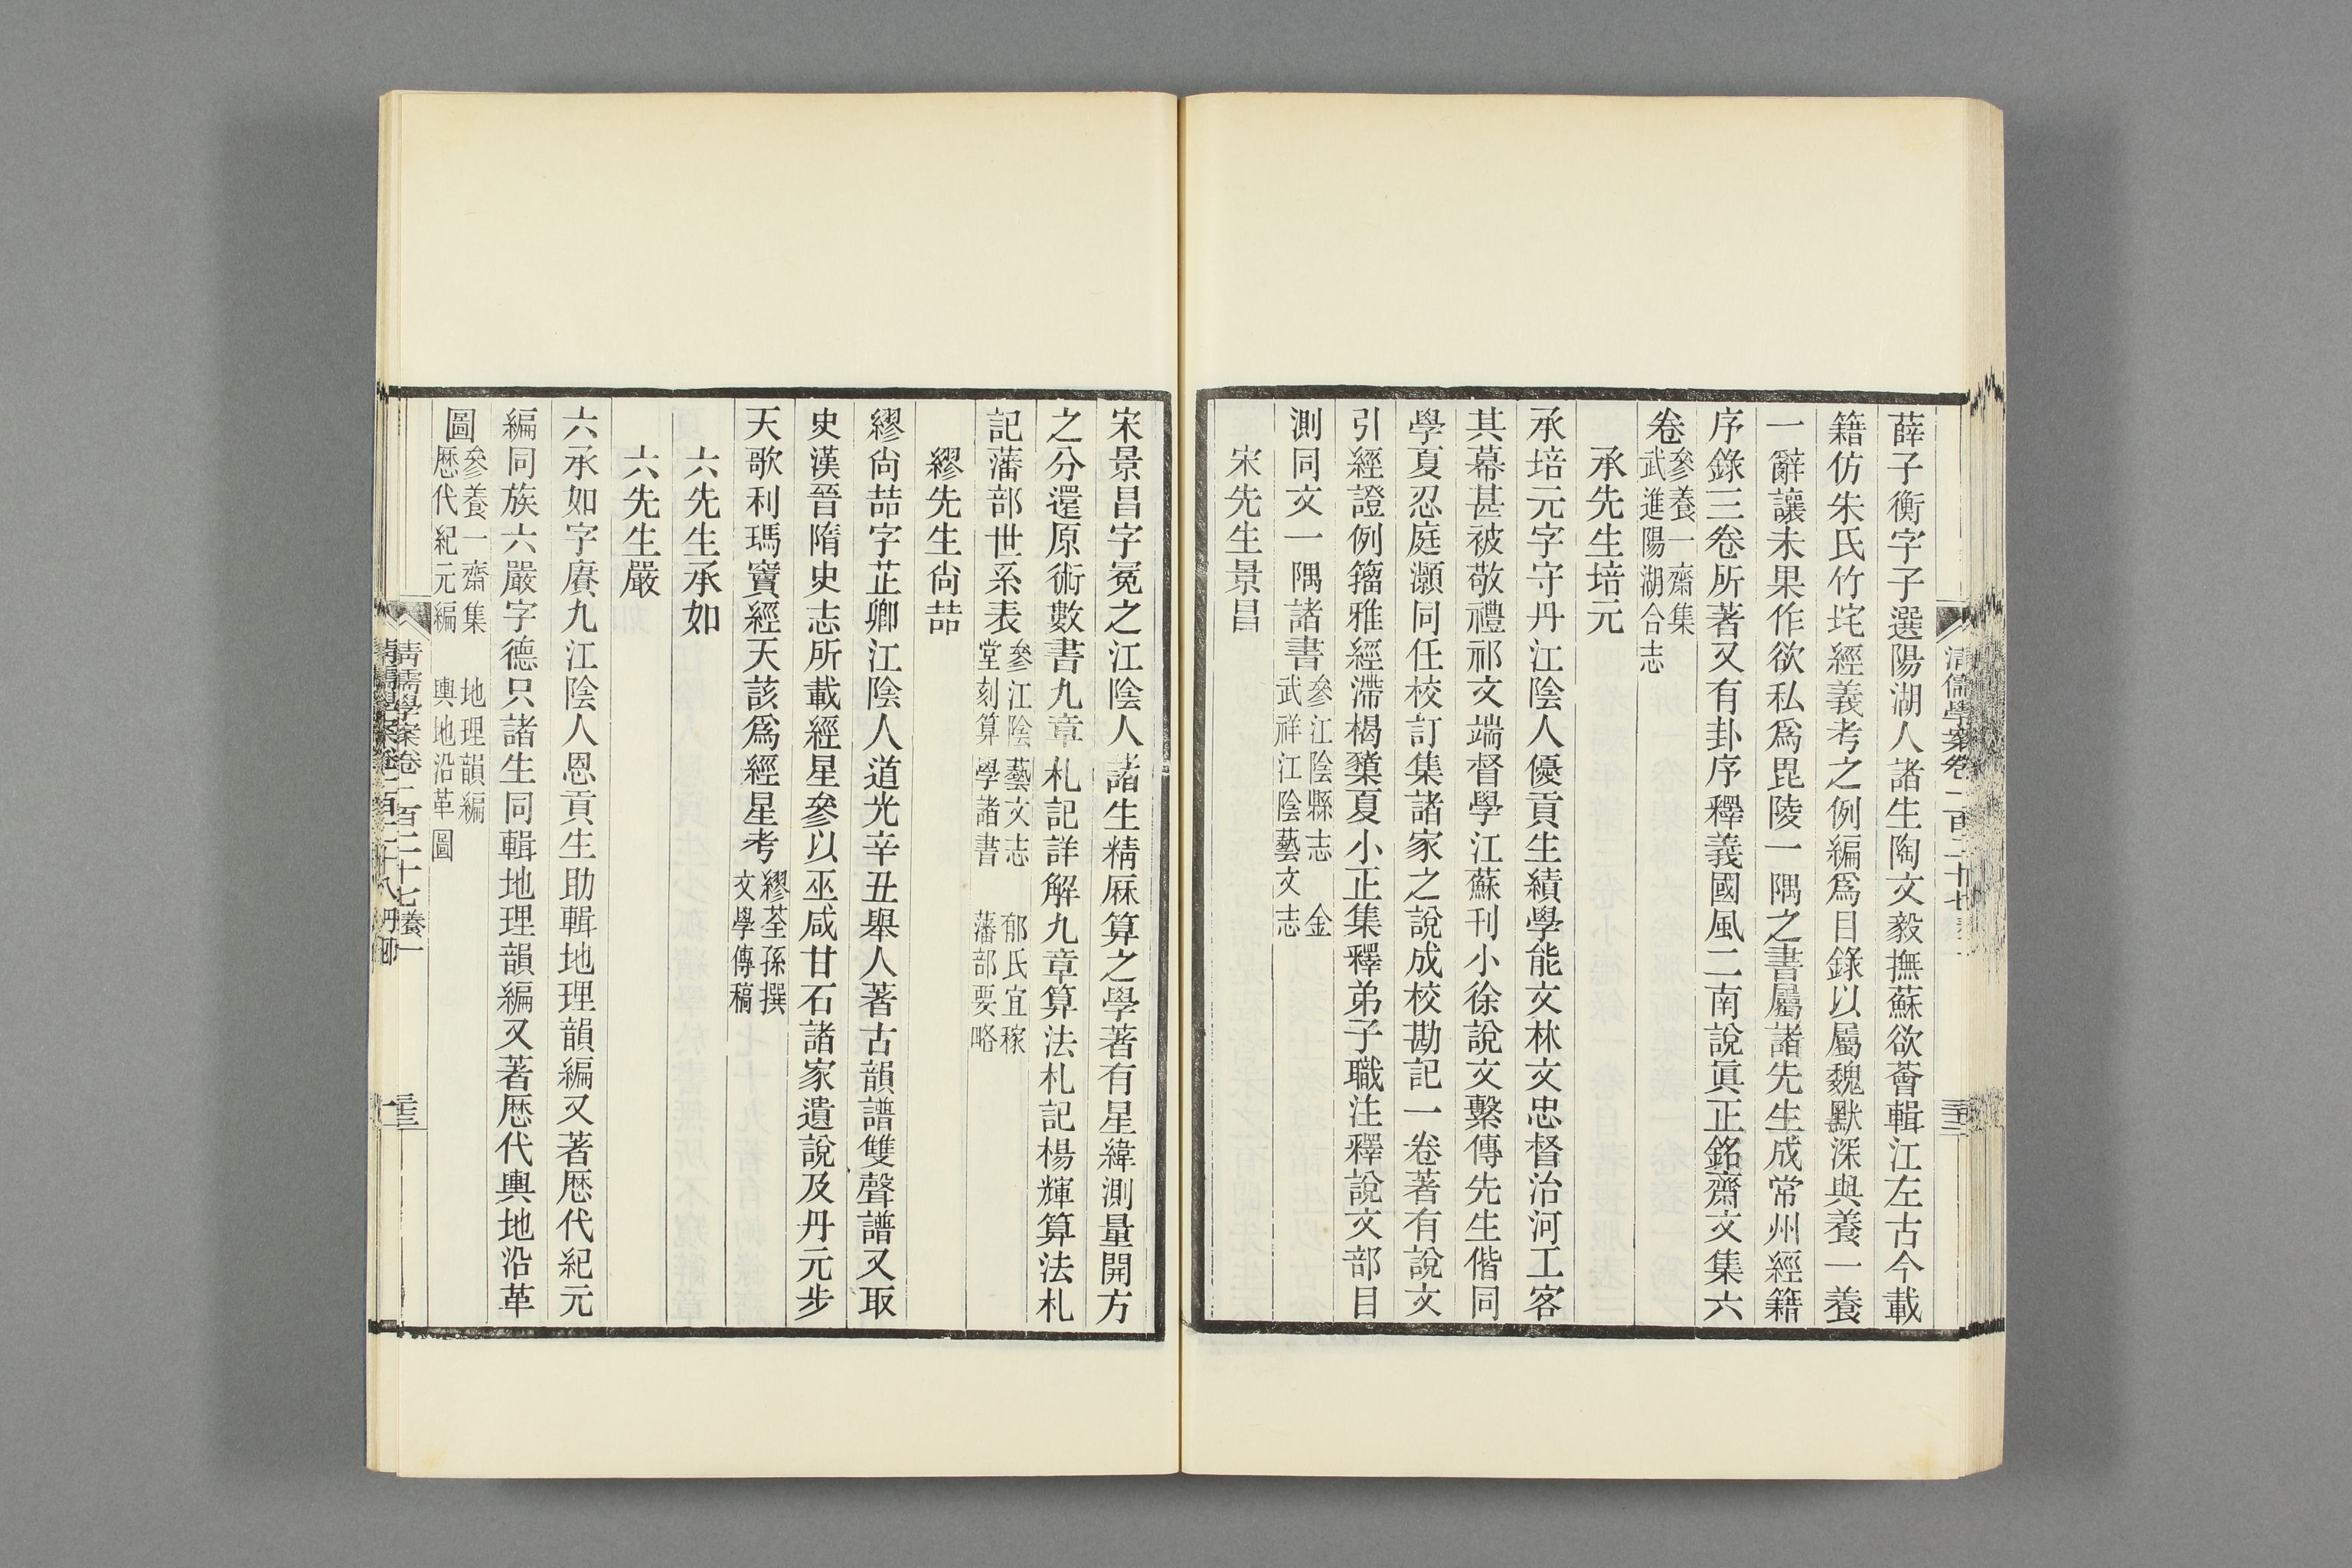 薛子衡字子選陽湖人諸生陶文毅撫蘇欲薈輯江左古今載
籍仿朱氏竹垞經義考之例編爲目錄以屬魏默深與養一養
一辭讓未果作欲私爲毘陵一隅之書屬諸先生成常州經籍
序錄三卷所著又有卦序釋義國風二南說眞正銘齋文集六
卷參養一齋集
武進陽湖合志
承先生培元
承培元字守丹江陰人優貢生績學能文林文忠督治河工客
其幕甚被敬禮祁文端督學江蘇刊小徐說文繫傳先生偕同
學夏忍庭灝同任校訂集諸家之說成校勘記一卷著有說文
引經證例籀雅經滯楬櫫夏小正集釋弟子職注釋說文部目
測同文一隅諸書參江陰縣志 金
武祥江陰藝文志
宋先生景昌
宋景昌字冕之江陰人諸生精厤算之學著有星緯測量開方
之分還原術數書九章札記詳解九章算法札記楊輝算法札
記藩部世系表參江陰藝文志 郁氏宜稼
堂刻算學諸書 藩部要略
繆先生尙喆
繆尙喆字芷卿江陰人道光辛丑舉人著古韻譜雙聲譜又取
史漢晉隋史志所載經星參以巫咸甘石諸家遺說及丹元步
天歌利瑪竇經天該爲經星考繆荃孫撰
文學傳稿
六先生承如
六先生嚴
六承如字賡九江陰人恩貢生助輯地理韻編又著厯代紀元
編同族六嚴字德只諸生同輯地理韻編又著厯代輿地沿革
圖參養一齋集 地理韻編
厯代紀元編 輿地沿革圖
清儒學案卷二百二十七養一